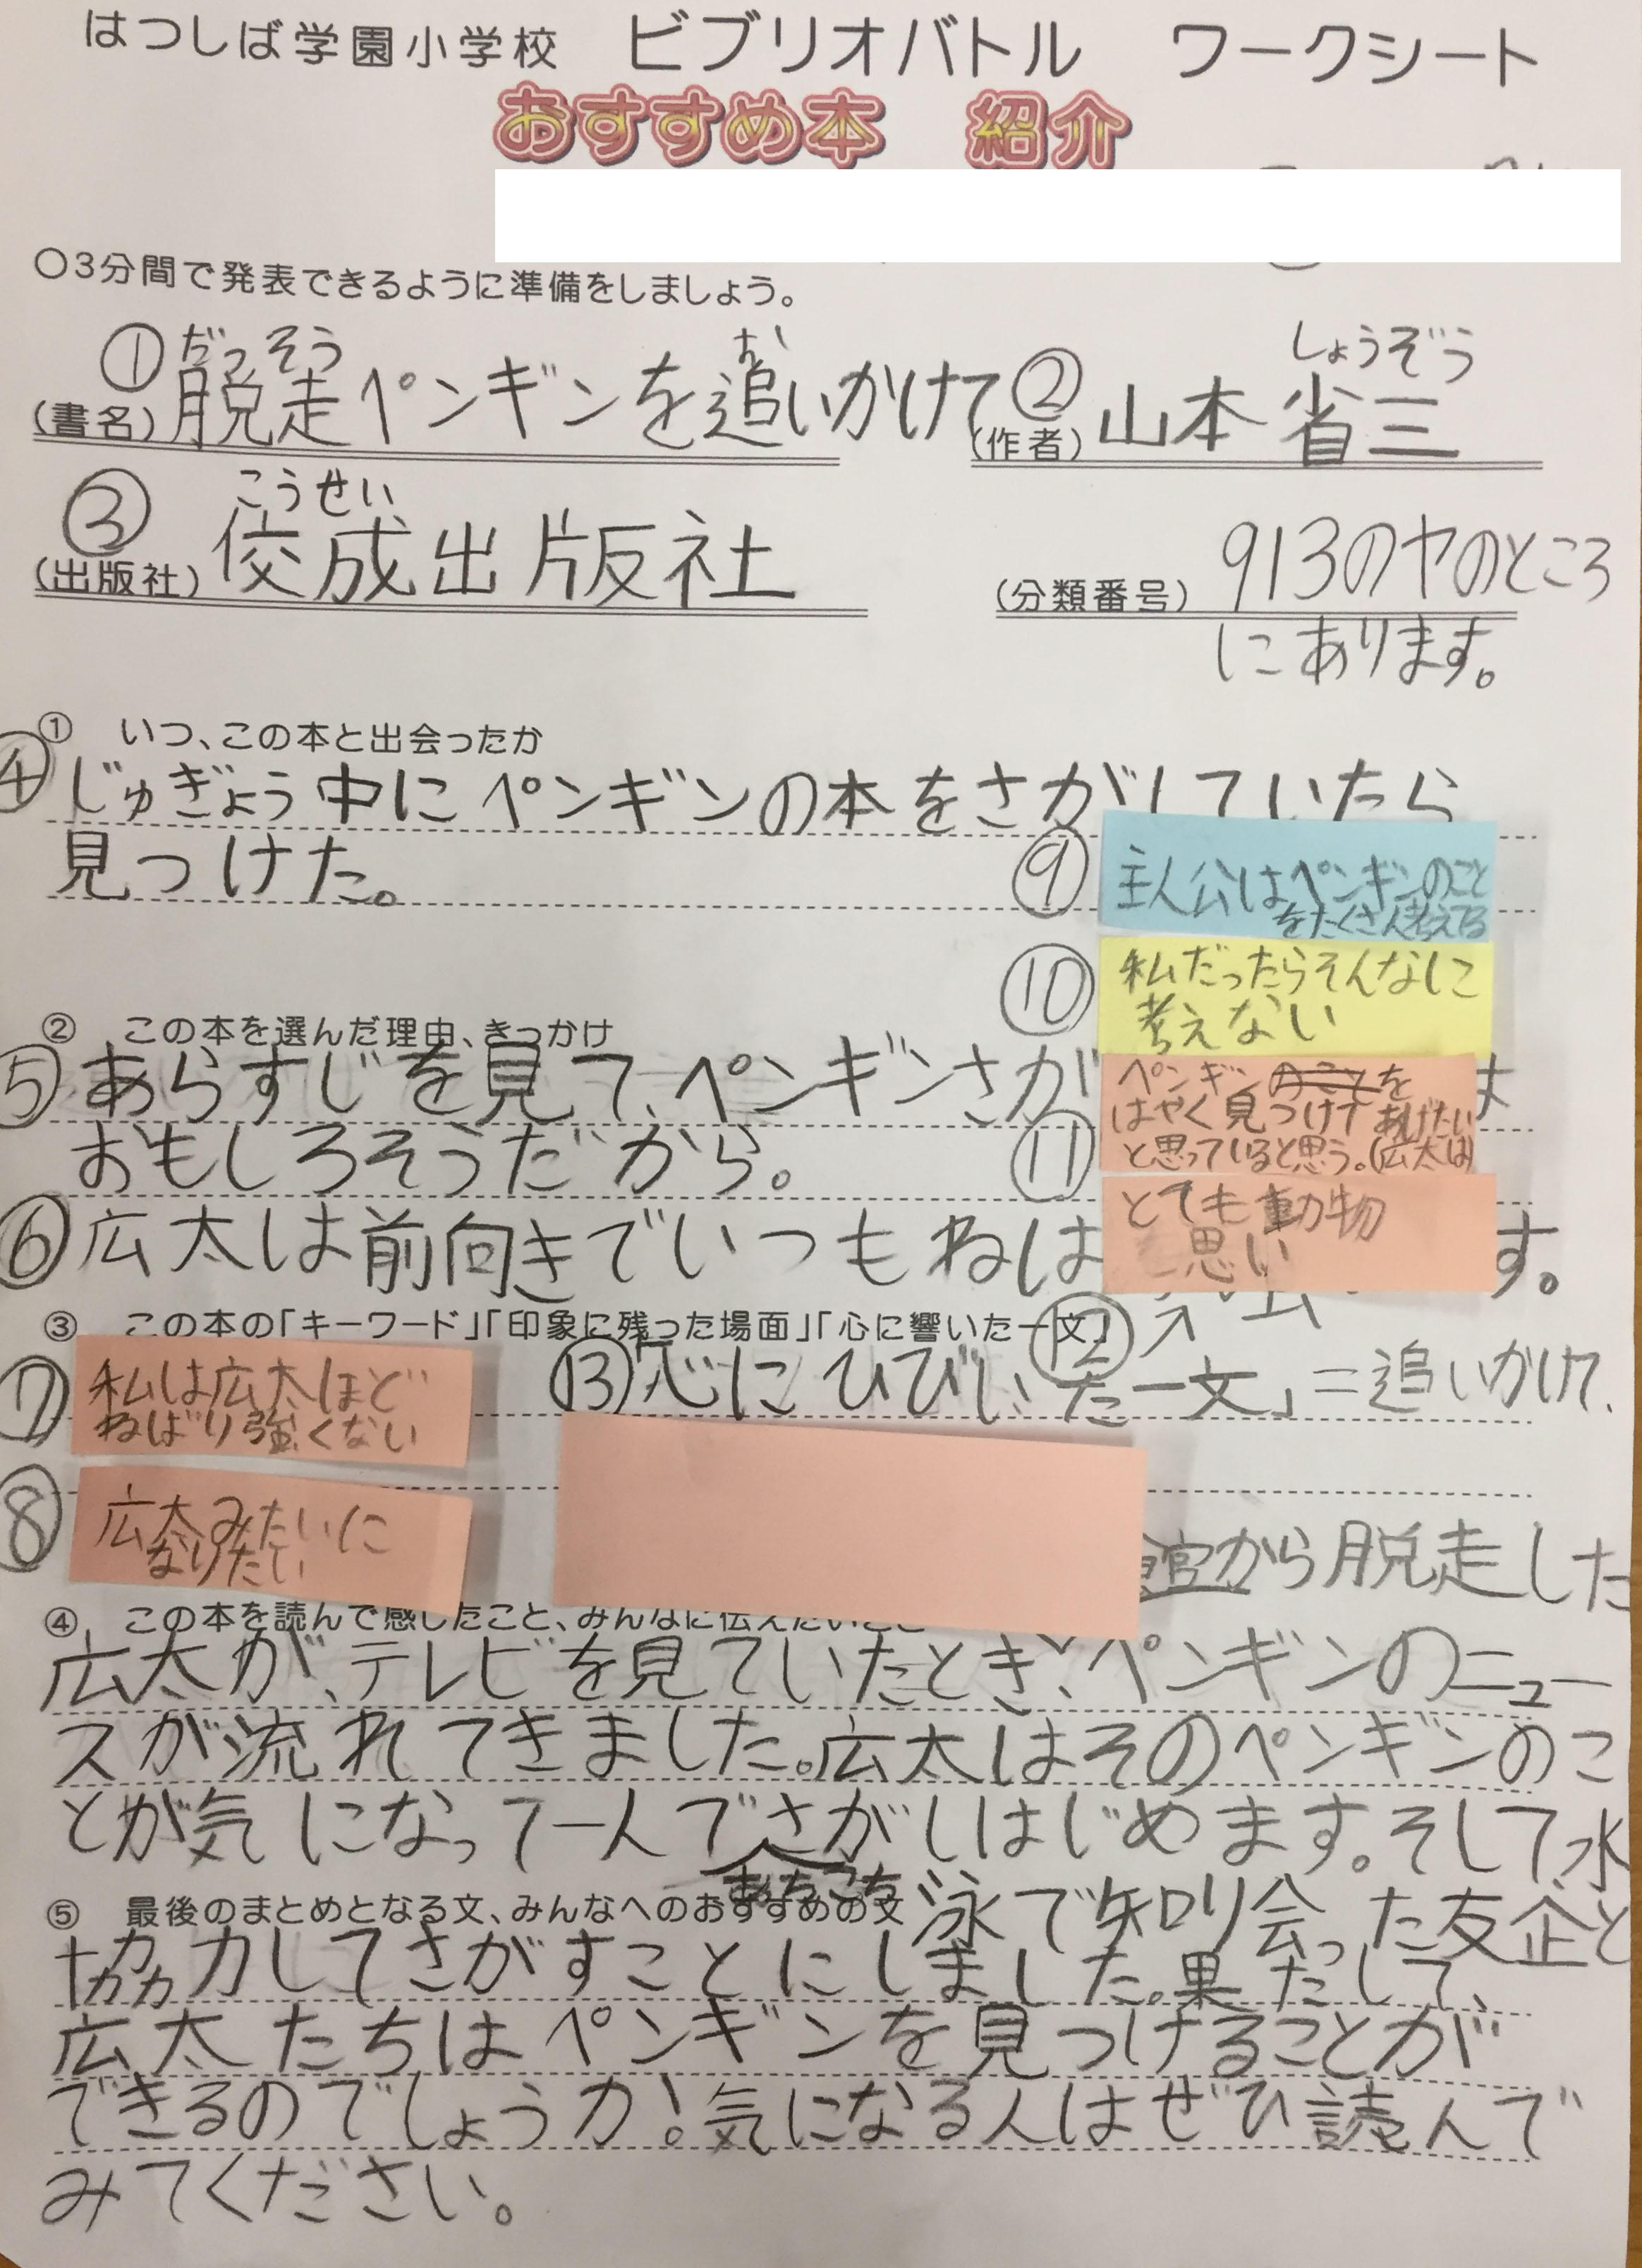 はつしば学園小学校 ビブリオバトル ワークシート
おすすめ本 紹介
○3分間で発表できるように準備をしましょう。
だっそう お
① (書名) 脱走ペンギンを追いかけて
しょうぞう
② (作者) 山本省三
こうせい
③ (出版社) 佼成出版社
(分類番号) 913のヤのところ
にあります。
① いつ、この本と出会ったか
④ じゅぎょう中にペンギンの本をさがしていたら
見つけた。
⑨ 主人公はペンギンのこと
をたくさん考えてる
⑩ 私だったらそんなに
考えない
② この本を選んだ理由、きっかけ
⑤ あらすじを見て、ペンギンさが
は
おもしろそうだから。
⑪ ペンギンのことを
はやく見つけてあげたい
と思っていると思う。(広太は)
とても動物
思い
⑥ 広太は前向きでいつもねば
す。
③ この本の「キーワード」「印象に残った場面」「心に響いた一文」
⑫
⑦ 私は広太ほど
ねばり強くない
⑬「心にひびいた一文」=追いかけて、
⑧ 広太みたいに
なりたい
館から脱走した
④ この本を読んで感じたこと、みんなに伝えたいこと
広太が、テレビを見ていたとき、ペンギンのニュー
スが流れてきました。広太はそのペンギンのこ
とが気になって一人でさがしはじめます。そして、水
あちこち
⑤ 最後のまとめとなる文、みんなへのおすすめの文
泳で知り会った友企と
協力してさがすことにしました。果たして、
広太たちはペンギンを見つけることが
できるのでしょうか!気になる人はぜひ読んで
みてください。